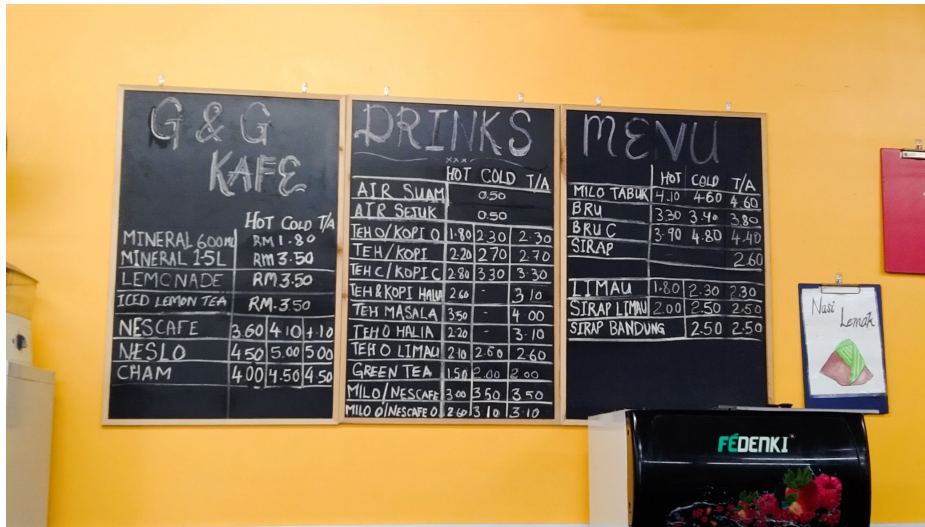 G & G
KAFE
HOT COLD T/A
MINERAL 600ML RM 1.80
MINERAL 1.5L RM 3.50
LEMONADE RM3.50
ICED LEMON TEA RM.3.50
NESCAFE 3.60 4.10 4.10
NESLO 4.50 5.00 5.00
CHAM 4.00 4.50 4.50
DRINKS
xxx
HOT COLD T/A
AIR SUAM 0.50
AIR SEJUK 0.50
TEH O/KOPI O 1.80 2.30 2.30
TEH/KOPI 2.20 2.70 2.70
TEH C/KOPI C 2.80 3.30 3.30
TEH & KOPI HALIA 2.60 - 3.10
TEH MASALA 3.50 - 4.00
TEH O HALIA 2.20 - 3.10
TEH O LIMAU 2.10 2.60 2.60
GREEN TEA 1.50 2.00 2.00
MILO/NESCAFE 3.00 3.50 3.50
MILO O/NESCAFE O 2.60 3.10 3.10
MENU
HOT COLD T/A
MILO TABUK 4.10 4.60 4.60
BRU 3.30 3.40 3.80
BRU C 3.90 4.80 4.40
SIRAP 2.60
LIMAU 1.80 2.30 2.30
SIRAP LIMAU 2.00 2.50 2.50
SIRAP BANDUNG 2.50 2.50
Nasi
Lemak
FÉDENKI